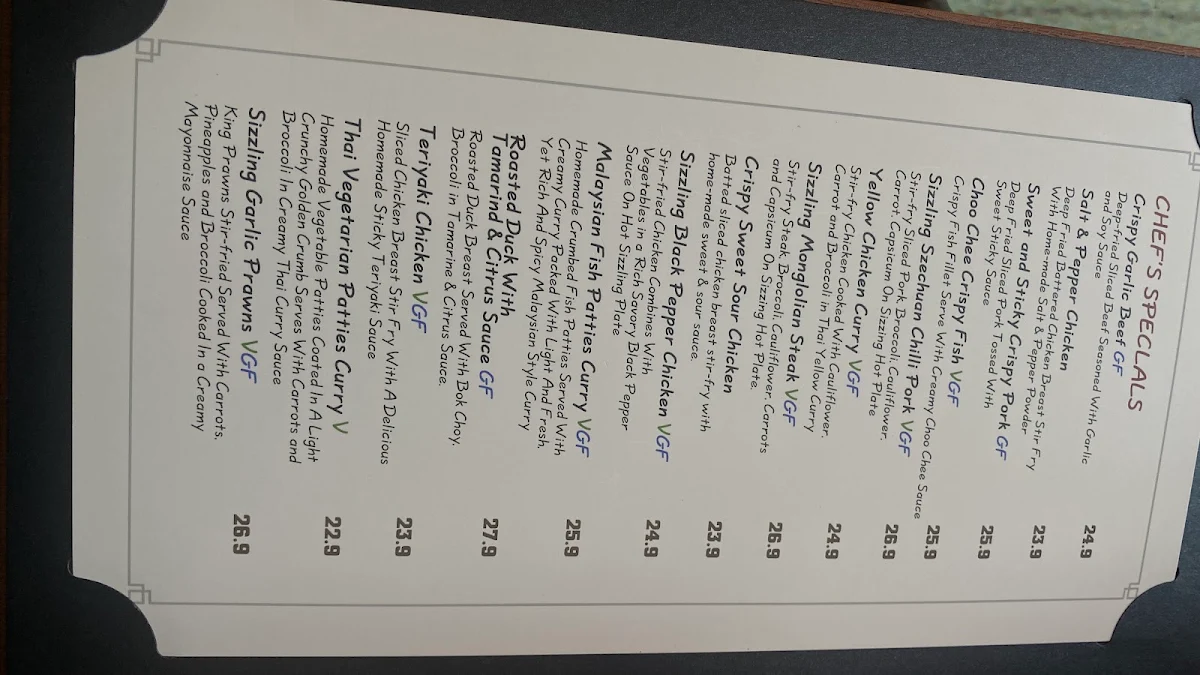 CHEF'S SPECLALS
Crispy Garlic Beef GF 24.9
Deep-fried Sliced Beef Seasoned With Garlic
and Soy Sauce
Salt & Pepper Chicken 23.9
Deep Fried Battered Chicken Breast Stir Fry
With Home-made Salt & Pepper Powder
Sweet and Sticky Crispy Pork GF 25.9
Deep Fried Sliced Pork Tossed With
Sweet Sticky Sauce
Choo Chee Crispy Fish VGF 25.9
Crispy Fish Fillet Serve With Creamy Choo Chee Sauce
Sizzling Szechuan Chilli Pork VGF 26.9
Stir-fry Sliced Pork Broccoli, Cauliflower,
Carrot, Capsicum On Sizzing Hot Plate
Yellow Chicken Curry VGF 24.9
Stir-fry Chicken Cooked With Cauliflower,
Carrot and Broccoli in Thai Yellow Curry
Sizzling Monglolian Steak VGF 26.9
Stir-fry Steak, Broccoli, Cauliflower, Carrots
and Capsicum On Sizzing Hot Plate.
Crispy Sweet Sour Chicken 23.9
Batted sliced chicken breast stir-fry with
home-made sweet & sour sauce.
Sizzling Black Pepper Chicken VGF 24.9
Stir-fried Chicken Combines With
Vegetables in a Rich Savory Black Pepper
Sauce On Hot Sizzling Plate
Malaysian Fish Patties Curry VGF 25.9
Homemade Crumbed Fish Patties Served With
Creamy Curry Packed With Light And Fresh,
Yet Rich And Spicy Malaysian Style Curry
Roasted Duck With
Tamarind & Citrus Sauce GF 27.9
Roasted Duck Breast Served With Bok Choy,
Broccoli in Tamarine & Citrus Sauce.
Teriyaki Chicken VGF 23.9
Sliced Chicken Breast Stir Fry With A Delicious
Homemade Sticky Teriyaki Sauce
Thai Vegetarian Patties Curry V 22.9
Homemade Vegetable Patties Coated In A Light
Crunchy Golden Crumb Serves With Carrots and
Broccoli In Creamy Thai Curry Sauce
Sizzling Garlic Prawns VGF 26.9
King Prawns Stir-fried Served With Carrots,
Pineapples and Broccoli Cooked In a Creamy
Mayonnaise Sauce